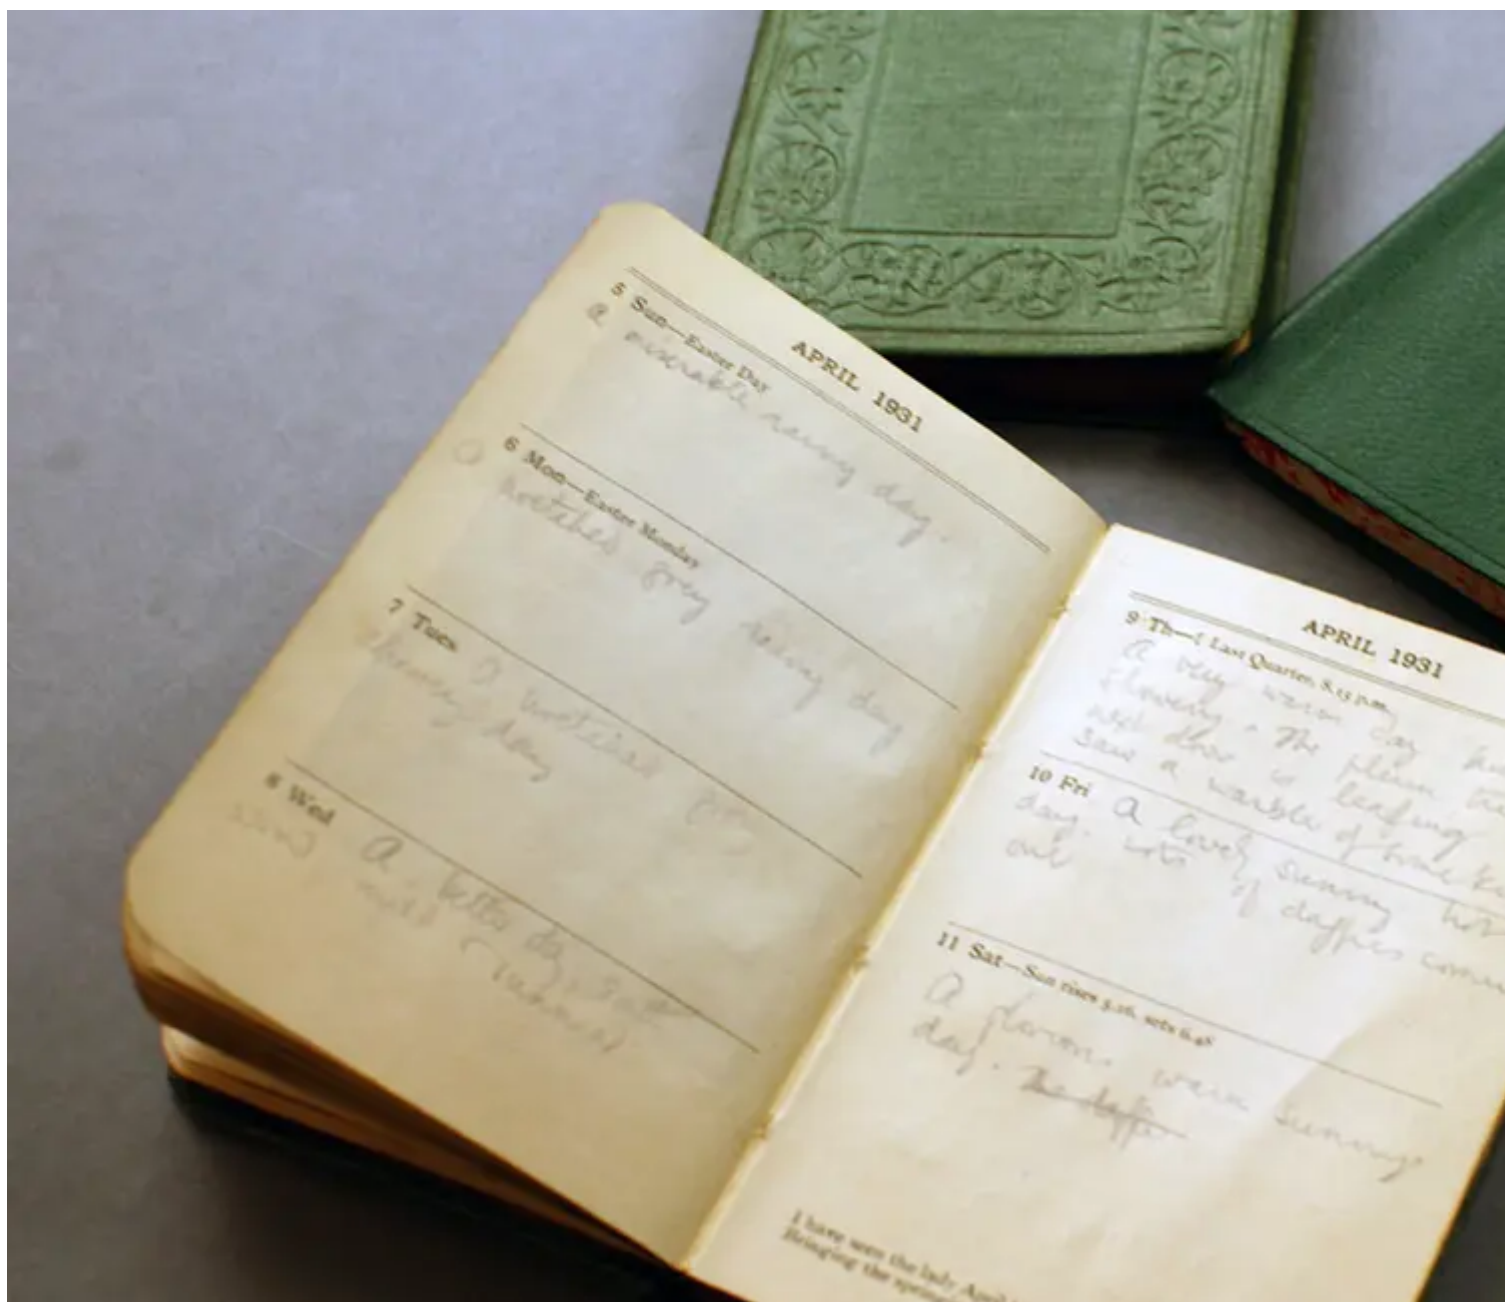 APRIL 1931
5 Sun—Easter Day
A miserable rainy day.
6 Mon—Easter Monday
A wretched grey rainy day
7 Tues A wretched grey
day
8 Wed A better day,
sunny
APRIL 1931
9 Th—☾ Last Quarter, 8.15 p.m.
A very warm day
flowery. The plum tree
next door is leafing
saw a warbler of some
10 Fri A lovely sunny hot
day. Lots of daffies
out
11 Sat—Sun rises 5.16, sets 6.48
A glorious warm sunny
day. The daffs
I have seen the lady April
Bringing the spring